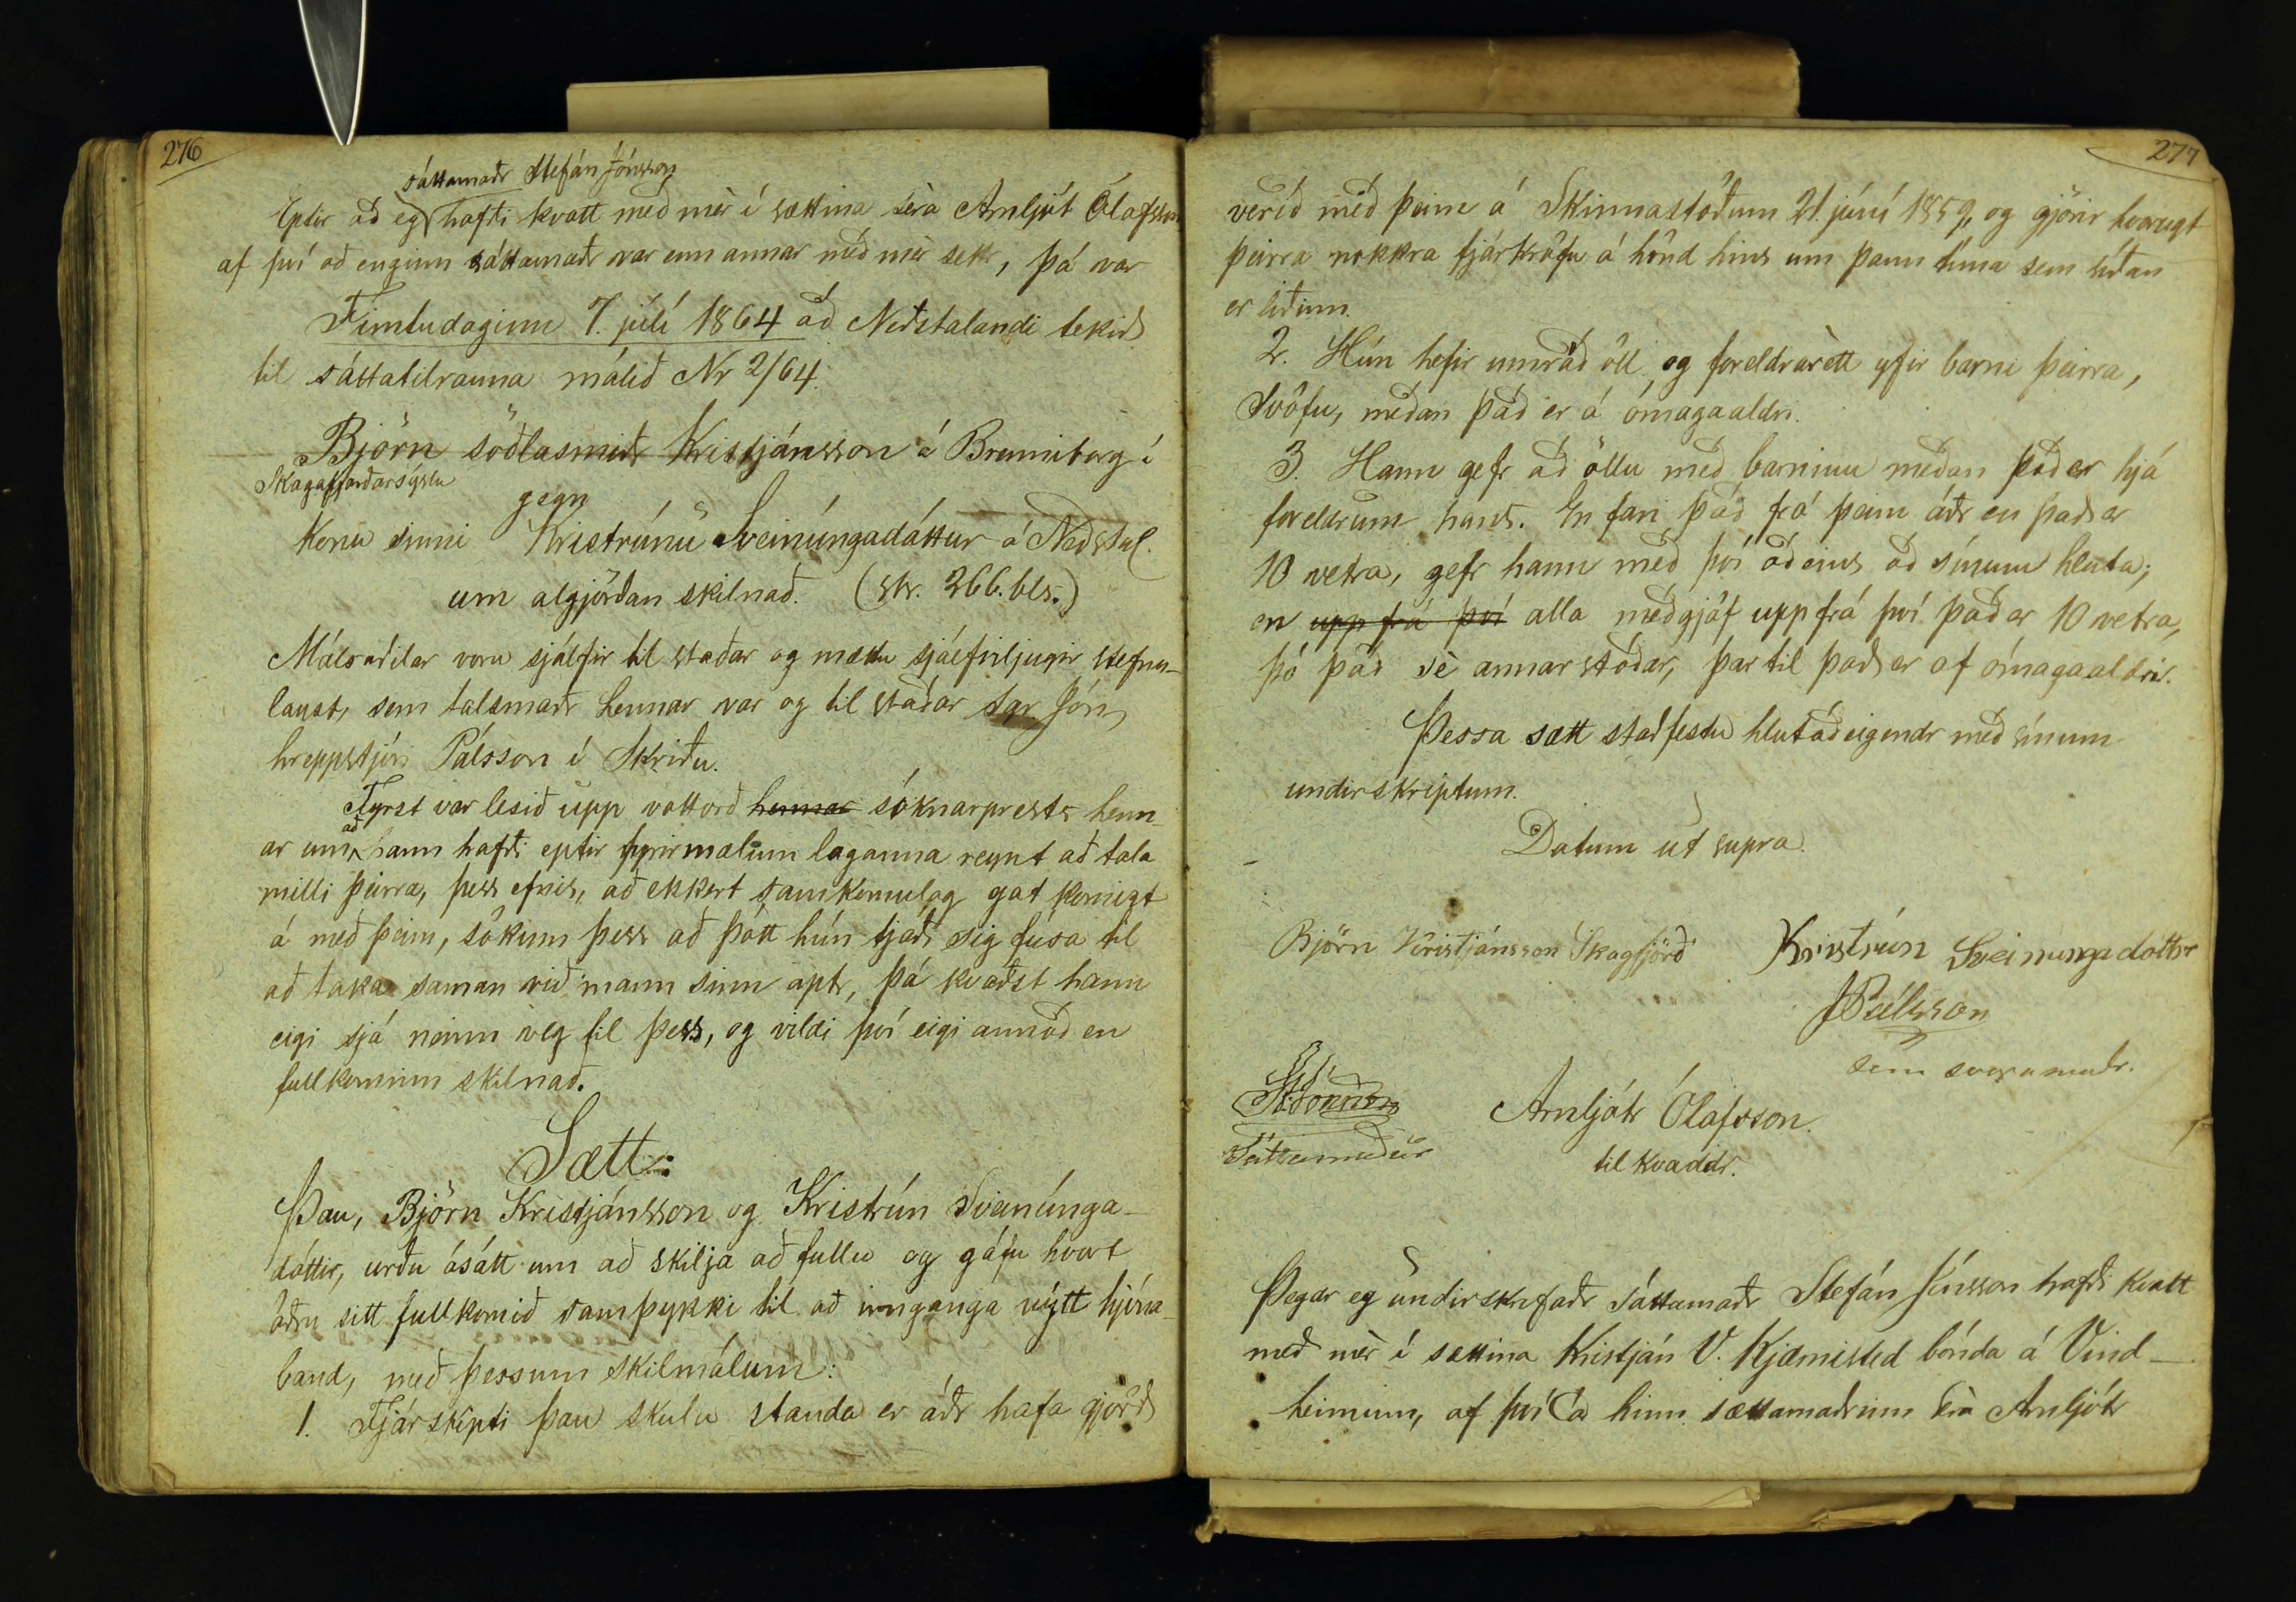 276
sáttamaðr Stefán Jónsson
Eptir að eg hafði kvatt með mèr í sættina séra Arnljót Ólafsson
af því að enginn sáttamaðr var enn annar með mèr settr, þá var
Fimtudaginn 7. júlí 1864 að Neðstalandi tekið
til sáttatilrauna málið Nr 2/64.
Björn söðlasmiðr Kristjánsson á Brenniborg í
Skagafjarðarsýslu
gegn
konu sinni Kristrúnu Sveinúngadóttur á Neðstal.
um algjörðan skilnað. (sbr. 266. bls.)
Málsaðilar voru sjálfir til staðar og mættu sjálfviljugir stefnu-
laust, sem talsmaðr hennar var og til staðar Sgr Jón
hreppstjóri Pálsson í Skriðu.
Fyrst var lesið upp vottorð hennar sóknarprests henn-
ar um að hann hafði eptir fyrirmælum laganna reynt að tala
milli þeirra, þess efnis, að ekkert samkomulag gat komizt
á með þeim, sökum þess að þótt hún tjáði sig fúsa til
að taka saman við mann sinn aptr, þá kvaðst hann
eigi sjá neinn veg til þess, og vildi því eigi annað en
fullkominn skilnað.
Sætt:
Þau, Björn Kristjánsson og Kristrún Sveinúnga-
dóttir, urðu ásátt um að skilja að fullu og gáfu hvort
öðru sitt fullkomið samþykki til að innganga nýtt hjóna-
band, með þessum skilmálum:
1. Fjárskipti þau skulu standa er áðr hafa gjörð
277
verið með þeim á Skinnastöðum 21. júní 1859, og gjörir hvorugt
þeirra nokkra fjárkröfu á hönd hins um þann tíma sem síðan
er liðinn.
2. Hún hefir umráð öll og foreldrarètt yfir barni þeirra,
Svöfu, meðan það er á ómagaaldri.
3. Hann gefr að öllu með barninu meðan það er hjá
foreldrum hans. En fari það frá þeim áðr en það er
10 vetra, gefr hann með því aðeins að sínum hluta;
en upp frá því alla meðgjöf upp frá því það er 10 vetra,
þó það sè annarstaðar, þar til það er af ómagaaldri.
Þessa sætt staðfestu hlutaðeigendr með sínum
undirskriptum.
Datum ut supra.
Björn Kristjánsson Skagfjörð Kristrún Sveinungadottir
JPálsson
sem svaramaðr.
St: Jónsson Arnljótr Ólafsson.
Sáttamaður til kvaddr.
Þegar eg undirskrifaðr sáttamaðr Stefán Jónsson hafði kvatt
með mèr í sættina Kristján V. Kjærnisted bónda á Vind-
heimum, af því að hinn sættamaðrinn séra Arnljótr